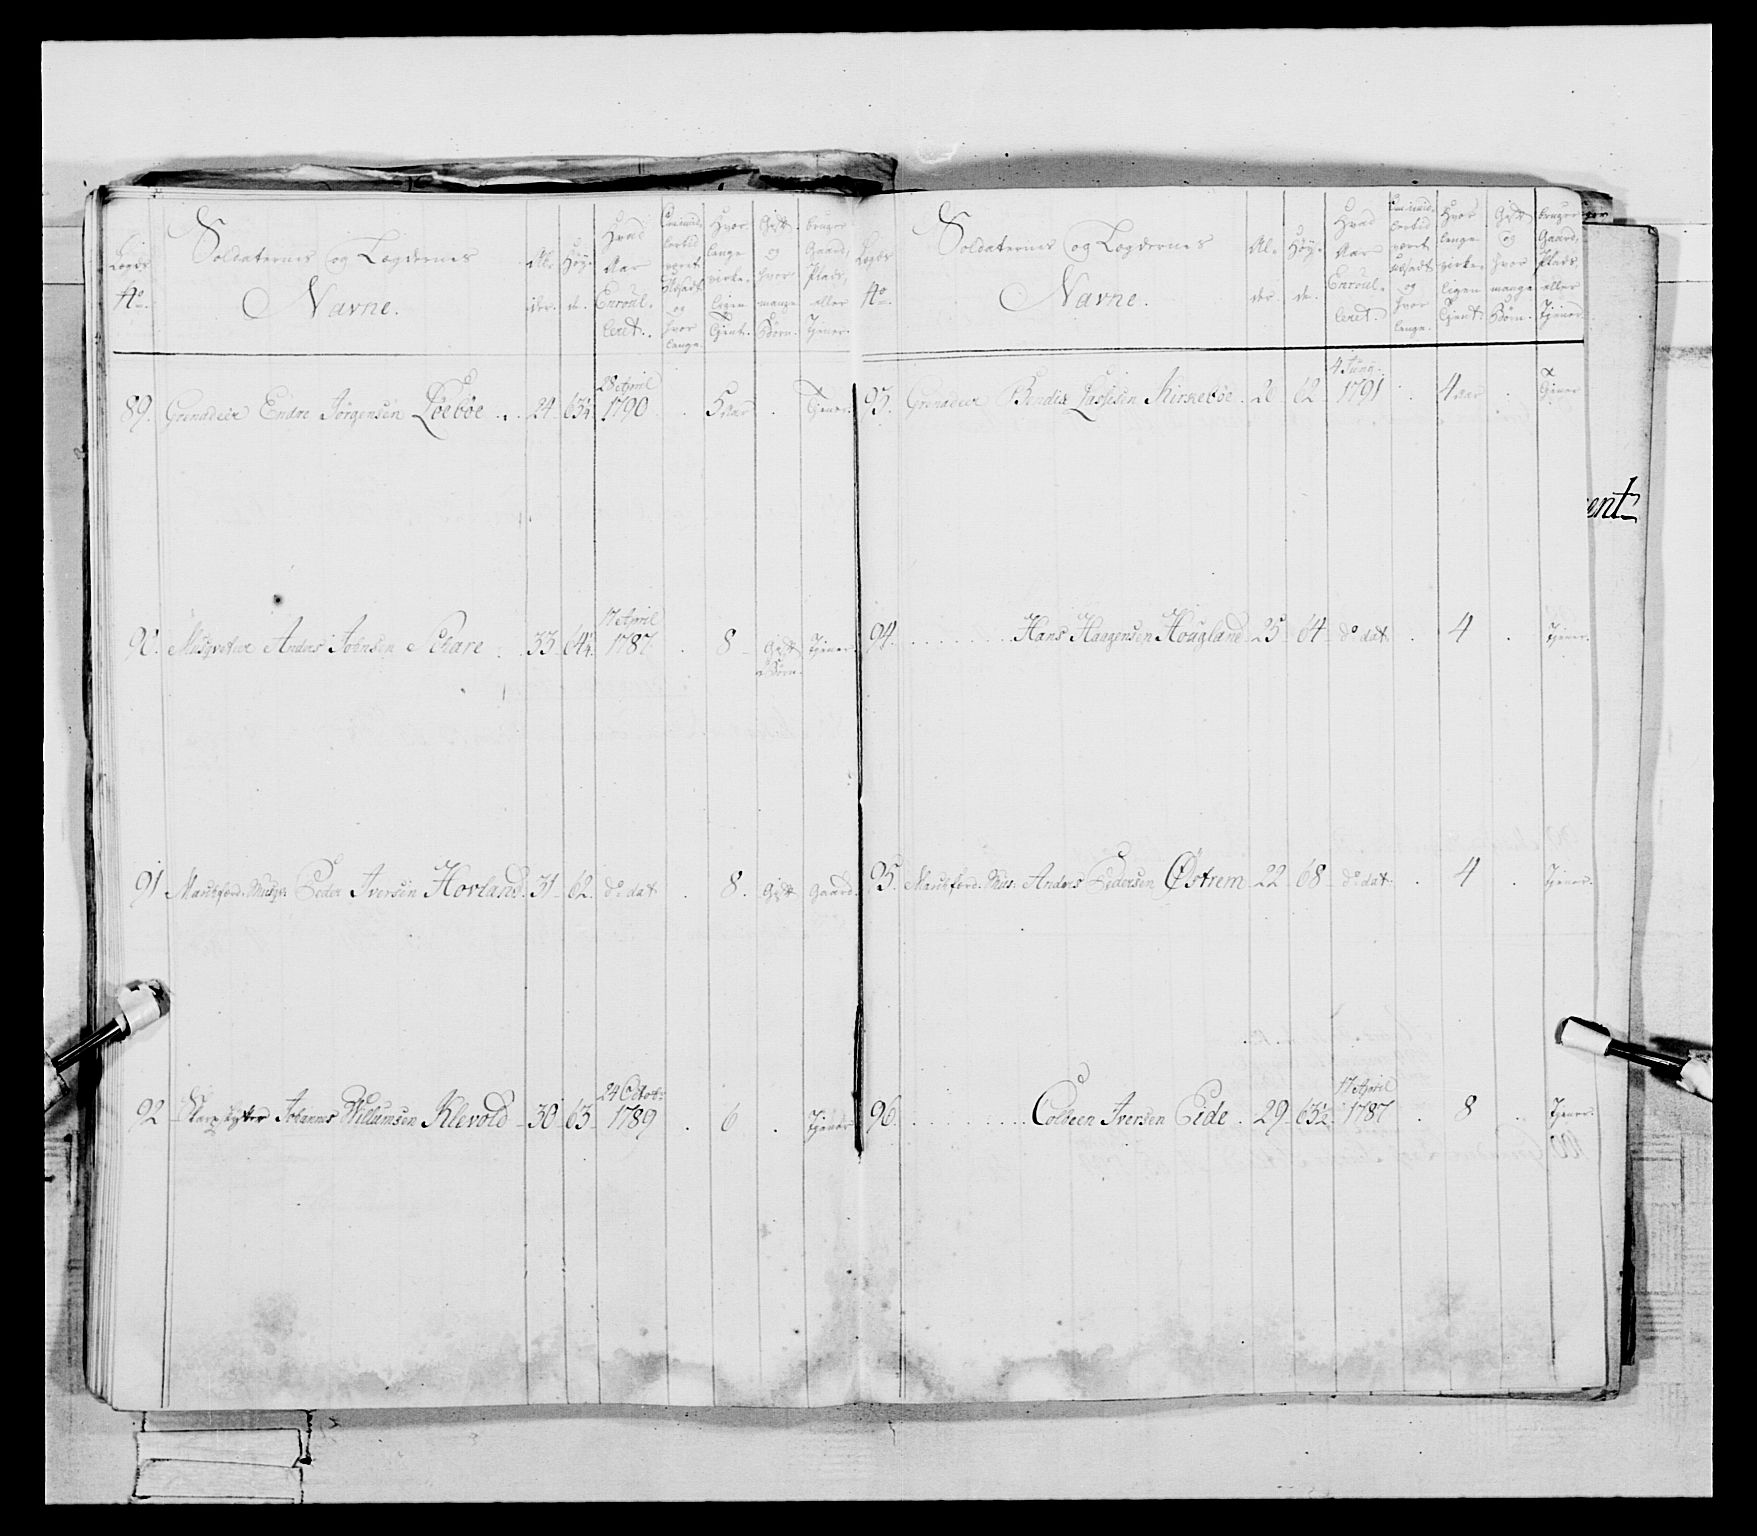 Legds No.
Soldaternes og Lægdernes
Navne.
Al-
der.
Høy-
de.
Hvad
Aar
Enroul-
leret.
og
hvor
lenge
Hvor
lenge
virke-
ligen
Tjent.
Gift
og
hvor
mange
Børn.
bruger
Gaard,
Plads,
eller
Tjener.
89. Grenadeer Endre Jørgensen Løebøe 24 63¼ 28 April 1790 5 Aar Tjener.
90. Musqveteer Anders Joensen Schare 33 64¼ 17 April 1787 8 Gift Børn Tjener.
91 Peder Iversen Hovland 31 62 do dat 8. Gift Gaard.
92 Skarpskytter Johannes Willumsen Klevold 30 63 24 Octobr 1789 6 Tjener
Legds No.
Soldaternes og Lægdernes
Navne.
Al-
der
Høy-
de.
Hvad
Aar
Enroul-
leret.
og
hvor
lenge.
Hvor
lenge
virke-
ligen
Tjent.
Gift
og
hvor
mange
Børn.
bruger
Gaard,
Plads,
eller
Tjener.
93. Grenadeer Bendix Lassesen Kirkebøe 26 62 4 Juny 1791 4 Aar Tjener
94. Hans Haagensen Hougland 25 64 do dat 4 Tjener.
95. Mus: Anders Pedersen Østrem 22 68 do dat 4 Tjener.
96. Coldeen Iversen Eide 29 63½ 17 April 1787 8 Tjener.
ent